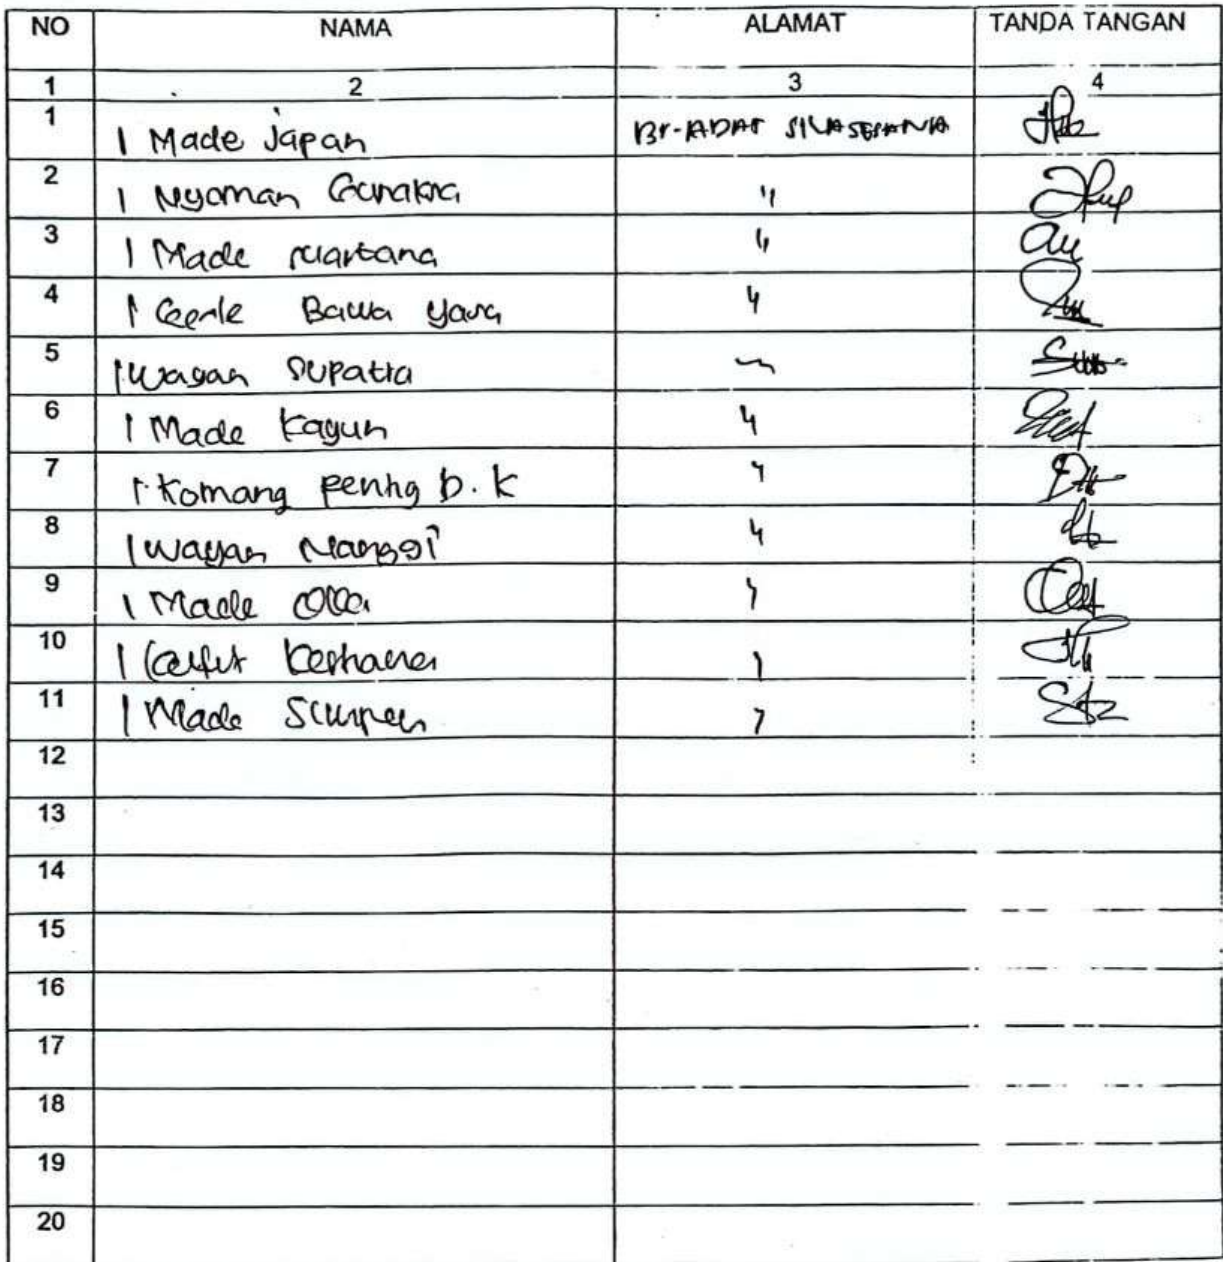 NO NAMA ALAMAT TANDA TANGAN
1 2 3 4
1 I Made Japan Br. ADAT SILASESANA
2 I Nyoman Gunaksa "
3 I Made suartana "
4 I Gede Bawa Yasa "
5 I Wayan Supatra
6 I Made Kayun "
7 I Komang Pening D. K "
8 I Wayan Nanggi "
9 I Made Olla "
10 I Ketut "
11 I Made "
12
13
14
15
16
17
18
19
20